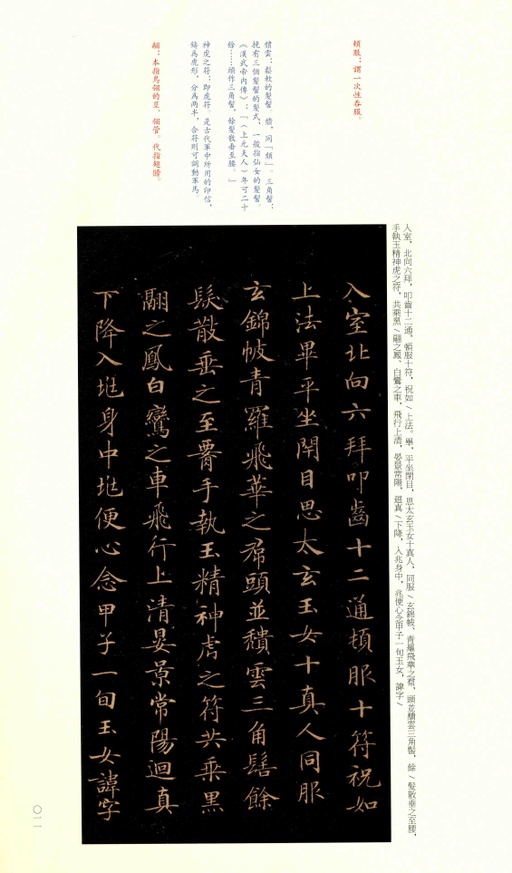 頓服：謂一次性吞服。
穨雲：鬆軟的髮髻。穨，同「頹」。三角髻：
挽有三個髮髻的髮式，一般指仙女的髮髻。
《漢武帝內傳》：「（上元夫人）年可二十
餘……頭作三角髻，餘髮散垂至腰。」
神虎之符：即虎符。是古代軍中所用的印信，
鑄爲虎形，分爲兩半，合符則可調動軍馬。
翮：本指鳥翎的莖、翎管。代指翅膀。
入室，北向六拜，叩齒十二通，頓服十符，祝如＼上法。畢，平坐閉目，思太玄玉女十真人，同服＼玄錦帔、青羅飛華之帬，頭並穨雲三角髻，餘＼髮散垂之至腰，
手執玉精神虎之符，共乘黑＼翮之鳳、白鸞之車，飛行上清，晏景常陽，迴真＼下降，入兆身中，兆便心念甲子一旬玉女，諱字＼
入室北向六拜叩齒十二通頓服十符祝如
上法畢平坐閉目思太玄玉女十真人同服
玄錦帔青羅飛華之帬頭並穨雲三角髻餘
髮散垂之至腰手執玉精神虎之符共乘黑
翮之鳳白鸞之車飛行上清晏景常陽迴真
下降入兆身中兆便心念甲子一旬玉女諱字
〇一一